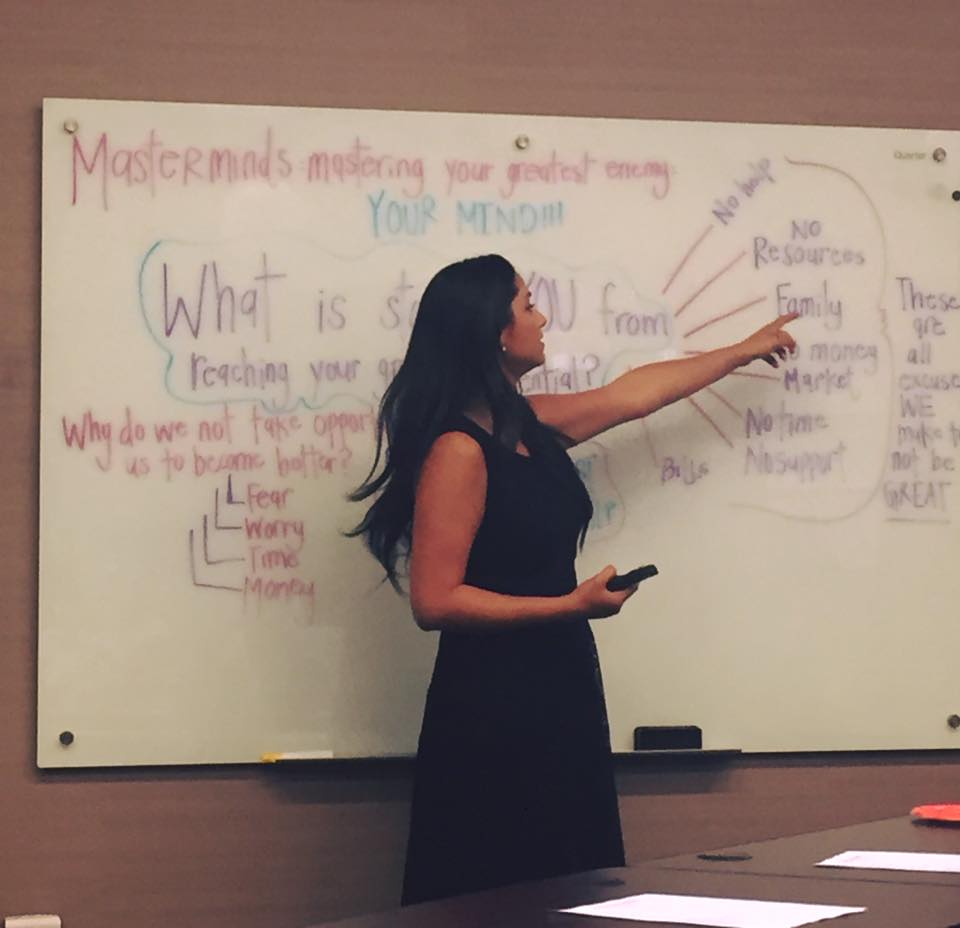 Masterminds: mastering your greatest enemy:
YOUR MIND!!!
What is YOU from
reaching your
Why do we not take
us to become better?
Fear
Worry
Time
Money
No help
NO
Resources
Family
money
Market
No time
No support
Bills
These
are
all
WE
not be
GREAT
Quartet